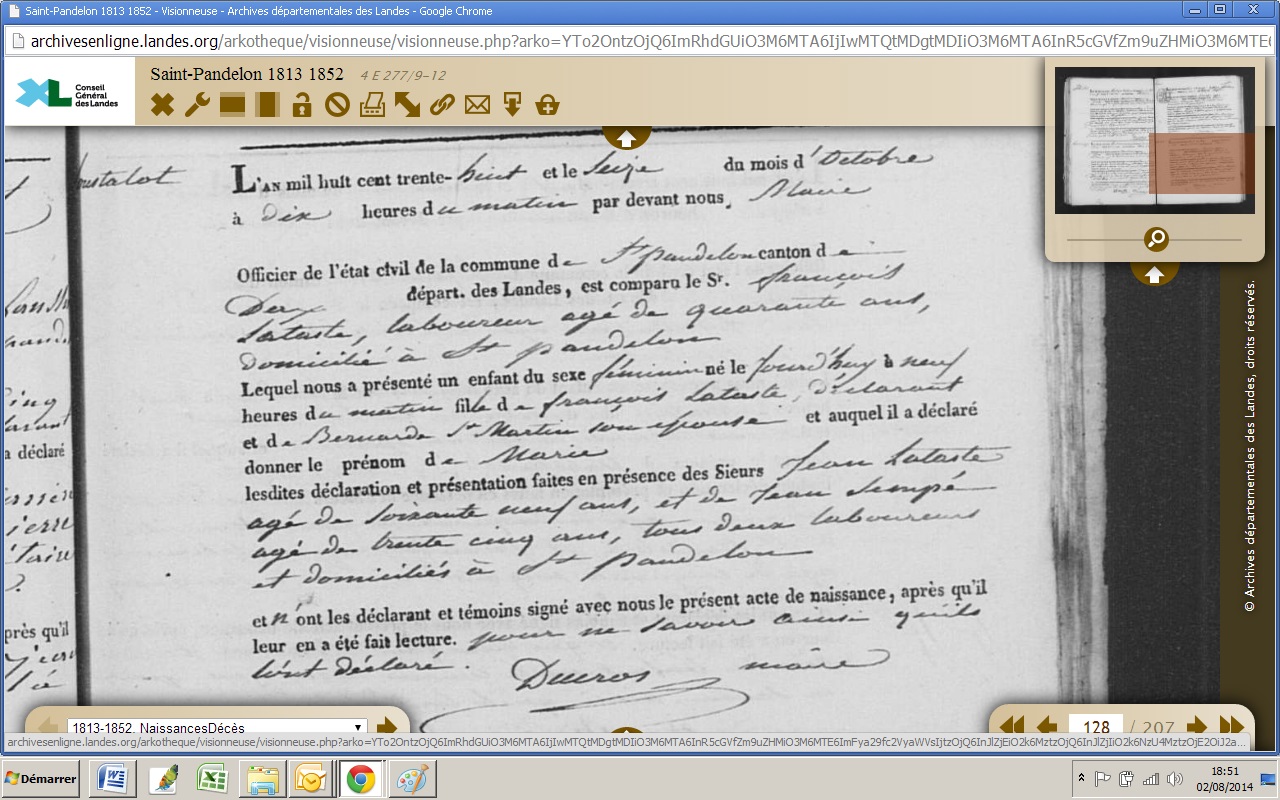 Saint-Pandelon 1813 1852 - Visionneuse - Archives départementales des Landes - Google Chrome
archivesenligne.landes.org/arkotheque/visionneuse/visionneuse.php?arko=YTo2OntzOjQ6ImRhdGUiO3M6MTA6IjIwMTQtMDgtMDIiO3M6MTA6InR5cGVfZm9uZHMiO3M6MTE6
Conseil
Général
des Landes
Saint-Pandelon 1813 1852 4 E 277/9-12
L'AN mil huit cent trente-huit et le Seize du mois d'Octobre
à dix heures du matin par devant nous, Maire
Officier de l'état civil de la commune de St pandelon canton de
Dax départ. des Landes, est comparu le Sr. françois
Lataste, laboureur agé de quarante ans,
domicilié à St pandelon
Lequel nous a présenté un enfant du sexe féminin né le jourd'huy à neuf
heures du matin fille de françois Lataste, déclarant
et de Bernarde St Martin son epouse et auquel il a déclaré
donner le prénom de Marie
lesdites déclaration et présentation faites en présence des Sieurs Jean Lataste
agé de soixante neuf ans, et de Jean Sempé
agé de trente cinq ans, tous deux laboureurs
et domiciliés à St pandelon
et n'ont les déclarant et témoins signé avec nous le présent acte de naissance, après qu'il
leur en a été fait lecture. pour ne savoir ainsi qu'ils
l'ont déclaré.
Ducros maire
a déclaré
près qu'il
© Archives départementales des Landes, droits réservés.
1813-1852. NaissancesDécès
128 / 207
Démarrer
18:51
02/08/2014